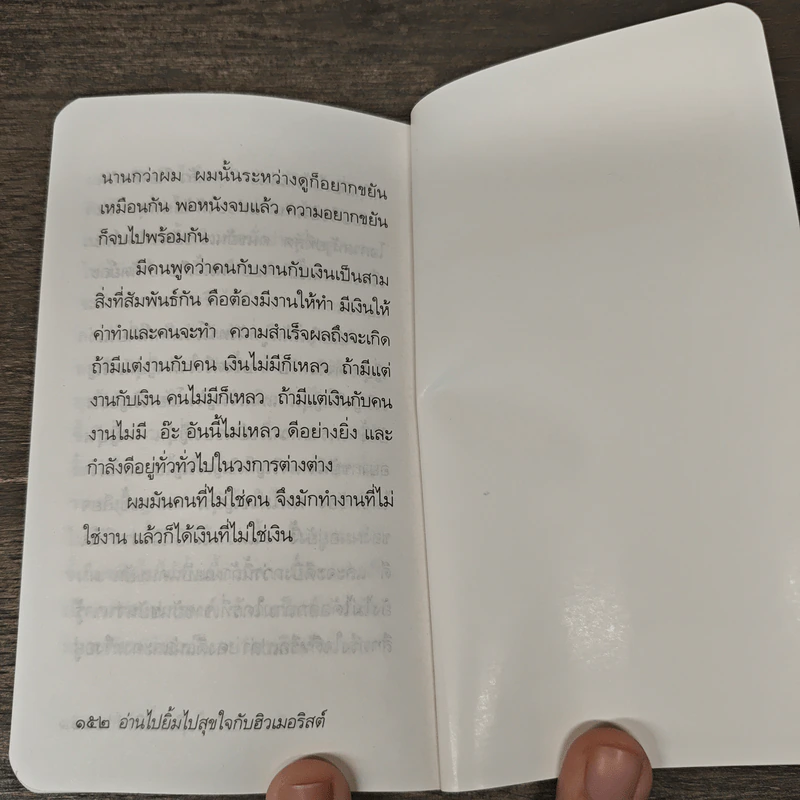 นานกว่าผม ผมนั้นระหว่างดูก็อยากขยัน
เหมือนกัน พอหนังจบแล้ว ความอยากขยัน
ก็จบไปพร้อมกัน
มีคนพูดว่าคนกับงานกับเงินเป็นสาม
สิ่งที่สัมพันธ์กัน คือต้องมีงานให้ทำ มีเงินให้
ค่าทำและคนจะทำ ความสำเร็จผลถึงจะเกิด
ถ้ามีแต่งานกับคน เงินไม่มีก็เหลว ถ้ามีแต่
งานกับเงิน คนไม่มีก็เหลว ถ้ามีแต่เงินกับคน
งานไม่มี อ๊ะ อันนี้ไม่เหลว ดีอย่างยิ่ง และ
กำลังดีอยู่ทั่วทั่วไปในวงการต่างต่าง
ผมมันคนที่ไม่ใช่คน จึงมักทำงานที่ไม่
ใช่งาน แล้วก็ได้เงินที่ไม่ใช่เงิน
๑๕๒ อ่านไปยิ้มไปสุขใจกับฮิวเมอริสต์